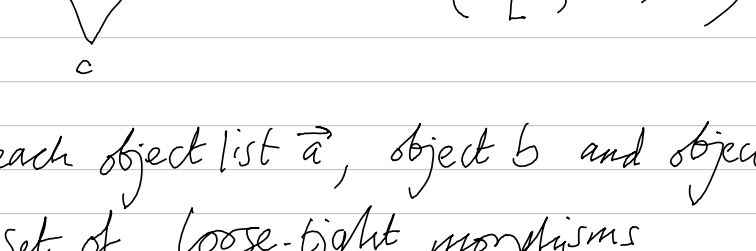 c
each object list a⃗, object b and objec
set of loose-tight morphisms